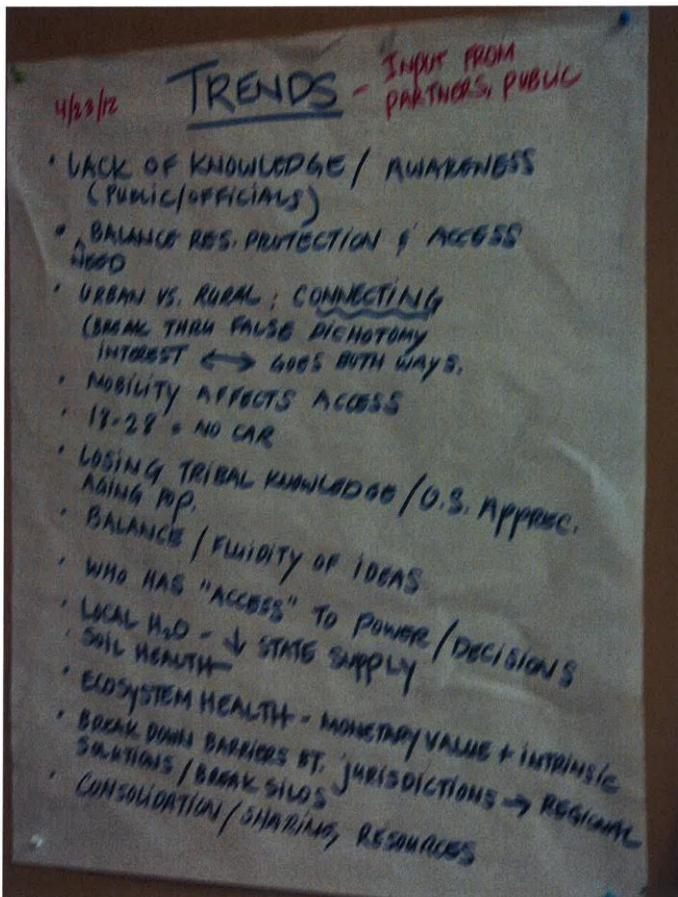 4/23/12 TRENDS - INPUT FROM
PARTNERS, PUBLIC
· LACK OF KNOWLEDGE / AWARENESS
(PUBLIC/OFFICIALS)
· BALANCE RES. PROTECTION & ACCESS
NEED
· URBAN VS. RURAL : CONNECTING
(BREAK THRU FALSE DICHOTOMY
INTEREST ↔ GOES BOTH WAYS.
· MOBILITY AFFECTS ACCESS
· 18-28 = NO CAR
· LOSING TRIBAL KNOWLEDGE / O.S. APPREC.
AGING POP.
· BALANCE / FLUIDITY OF IDEAS
· WHO HAS "ACCESS" TO POWER / DECISIONS
· LOCAL H2O - ↓ STATE SUPPLY
· SOIL HEALTH
· ECOSYSTEM HEALTH - MONETARY VALUE + INTRINSIC
· BREAK DOWN BARRIERS BT. JURISDICTIONS → REGIONAL
SOLUTIONS / BREAK SILOS
· CONSOLIDATION / SHARING, RESOURCES